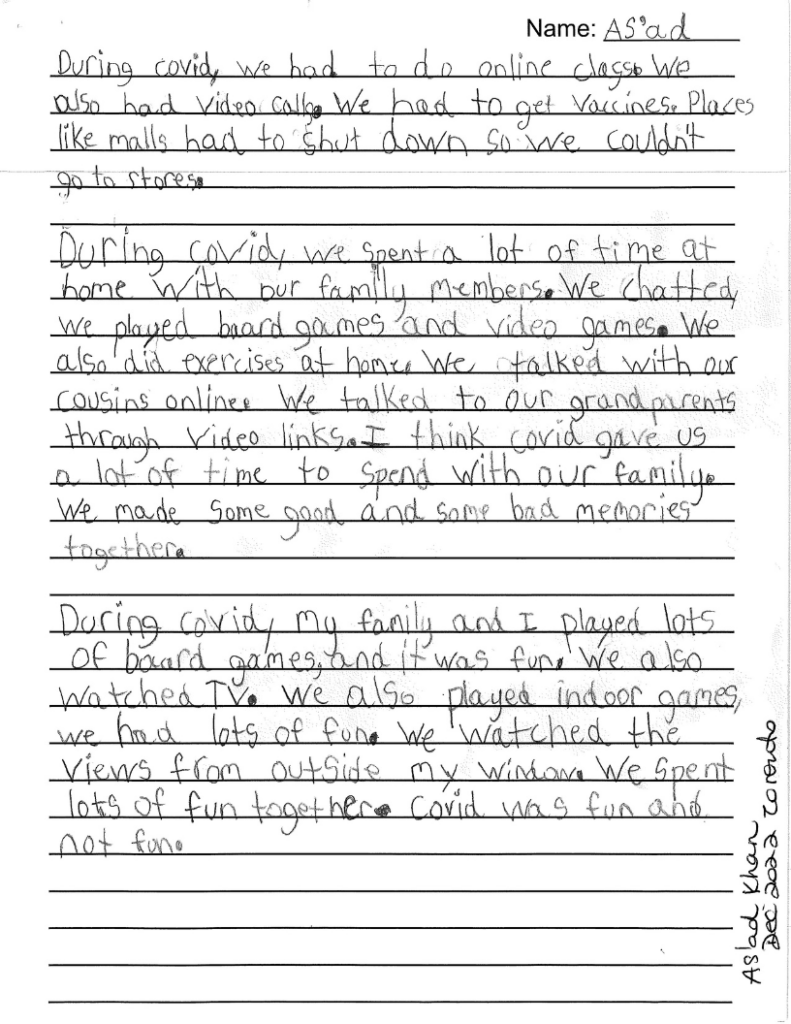 Name: AS'ad
During covid, we had to do online class. We
also had video calls. We had to get vaccines. Places
like malls had to shut down so we couldn't
go to stores.
During covid, we spent a lot of time at
home with our family members. We chatted,
we played board games and video games. We
also did exercises at home. We talked with our
cousins online. We talked to our grandparents
through video links. I think covid gave us
a lot of time to spend with our family.
We made some good and some bad memories
together.
During covid, my family and I played lots
of board games, and it was fun. We also
watched TV. We also played indoor games,
we had lots of fun. We watched the
views from outside my window. We spent
lots of fun together. Covid was fun and
not fun.
AS'ad Khan
Dec 2022 Toronto